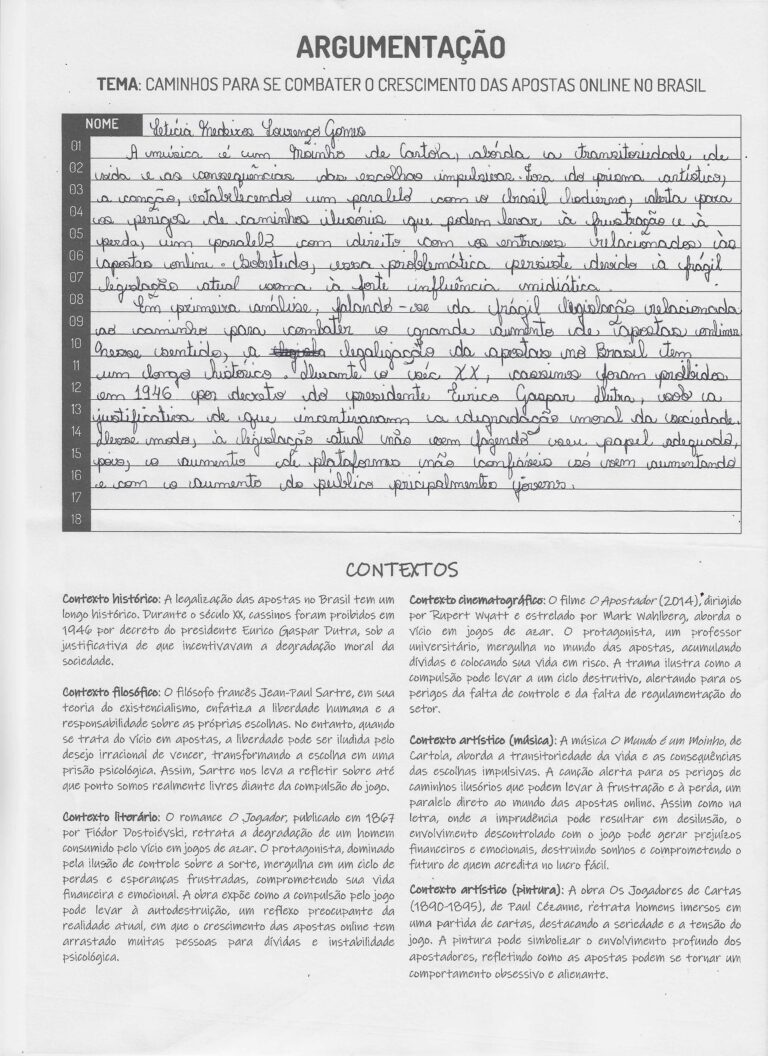 ARGUMENTAÇÃO
TEMA: CAMINHOS PARA SE COMBATER O CRESCIMENTO DAS APOSTAS ONLINE NO BRASIL
NOME Letícia Medeiros Lourenço Gomes
01 A música é um Moinho de Cartola, abórda a transitoriedade de
02 vida e as consequências das escolhas impulsivas. Fora do prisma artístico,
03 a canção, estabelecendo um paralelo com o Brasil hodierno, alerta para
04 os perigos de caminhos ilusórios que podem levar à frustração e à
05 perda, um paralelo com direito com os entraves relacionados às
06 apostas online. Sobretudo, essa problemática persiste devido à frágil
07 legislação atual soma à forte influência midiática.
08 Em primeira análise, falando-se da frágil legislação relacionada
09 ao caminho para combater o grande aumento de apostas online.
10 Nesse sentido, a legalização da apostas no Brasil tem
11 um longo histórico. Durante o séc XX, cassinos foram proibidos
12 em 1946 por decreto do presidente Eurico Gaspar Dutra, sob a
13 justificativa de que incentivavam a degradação moral da sociedade.
14 Desse modo, à legislação atual não vem fazendo seu papel adequado,
15 pois, o aumento de plataformas não confiáveis só vem aumentando
16 e com o aumento do público pricipalmentes jovens.
17
18
CONTEXTOS
Contexto histórico: A legalização das apostas no Brasil tem um
longo histórico. Durante o século XX, cassinos foram proibidos em
1946 por decreto do presidente Eurico Gaspar Dutra, sob a
justificativa de que incentivavam a degradação moral da
sociedade.
Contexto filosófico: O filósofo francês Jean-Paul Sartre, em sua
teoria do existencialismo, enfatiza a liberdade humana e a
responsabilidade sobre as próprias escolhas. No entanto, quando
se trata do vício em apostas, a liberdade pode ser iludida pelo
desejo irracional de vencer, transformando a escolha em uma
prisão psicológica. Assim, Sartre nos leva a refletir sobre até
que ponto somos realmente livres diante da compulsão do jogo.
Contexto literário: O romance O Jogador, publicado em 1867
por Fiódor Dostoiévski, retrata a degradação de um homem
consumido pelo vício em jogos de azar. O protagonista, dominado
pela ilusão de controle sobre a sorte, mergulha em um ciclo de
perdas e esperanças frustradas, comprometendo sua vida
financeira e emocional. A obra expõe como a compulsão pelo jogo
pode levar à autodestruição, um reflexo preocupante da
realidade atual, em que o crescimento das apostas online tem
arrastado muitas pessoas para dívidas e instabilidade
psicológica.
Contexto cinematográfico: O filme O Apostador (2014), dirigido
por Rupert Wyatt e estrelado por Mark Wahlberg, aborda o
vício em jogos de azar. O protagonista, um professor
universitário, mergulha no mundo das apostas, acumulando
dívidas e colocando sua vida em risco. A trama ilustra como a
compulsão pode levar a um ciclo destrutivo, alertando para os
perigos da falta de controle e da falta de regulamentação do
setor.
Contexto artístico (música): A música O Mundo é um Moinho, de
Cartola, aborda a transitoriedade da vida e as consequências
das escolhas impulsivas. A canção alerta para os perigos de
caminhos ilusórios que podem levar à frustração e à perda, um
paralelo direto ao mundo das apostas online. Assim como na
letra, onde a imprudência pode resultar em desilusão, o
envolvimento descontrolado com o jogo pode gerar prejuízos
financeiros e emocionais, destruindo sonhos e comprometendo o
futuro de quem acredita no lucro fácil.
Contexto artístico (pintura): A obra Os Jogadores de Cartas
(1890-1895), de Paul Cézanne, retrata homens imersos em
uma partida de cartas, destacando a seriedade e a tensão do
jogo. A pintura pode simbolizar o envolvimento profundo dos
apostadores, refletindo como as apostas podem se tornar um
comportamento obsessivo e alienante.